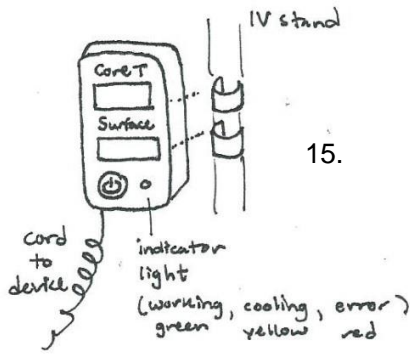 IV stand
Core T
Surface
15.
cord
to
device
indicator
light
(working, cooling, error)
green yellow red